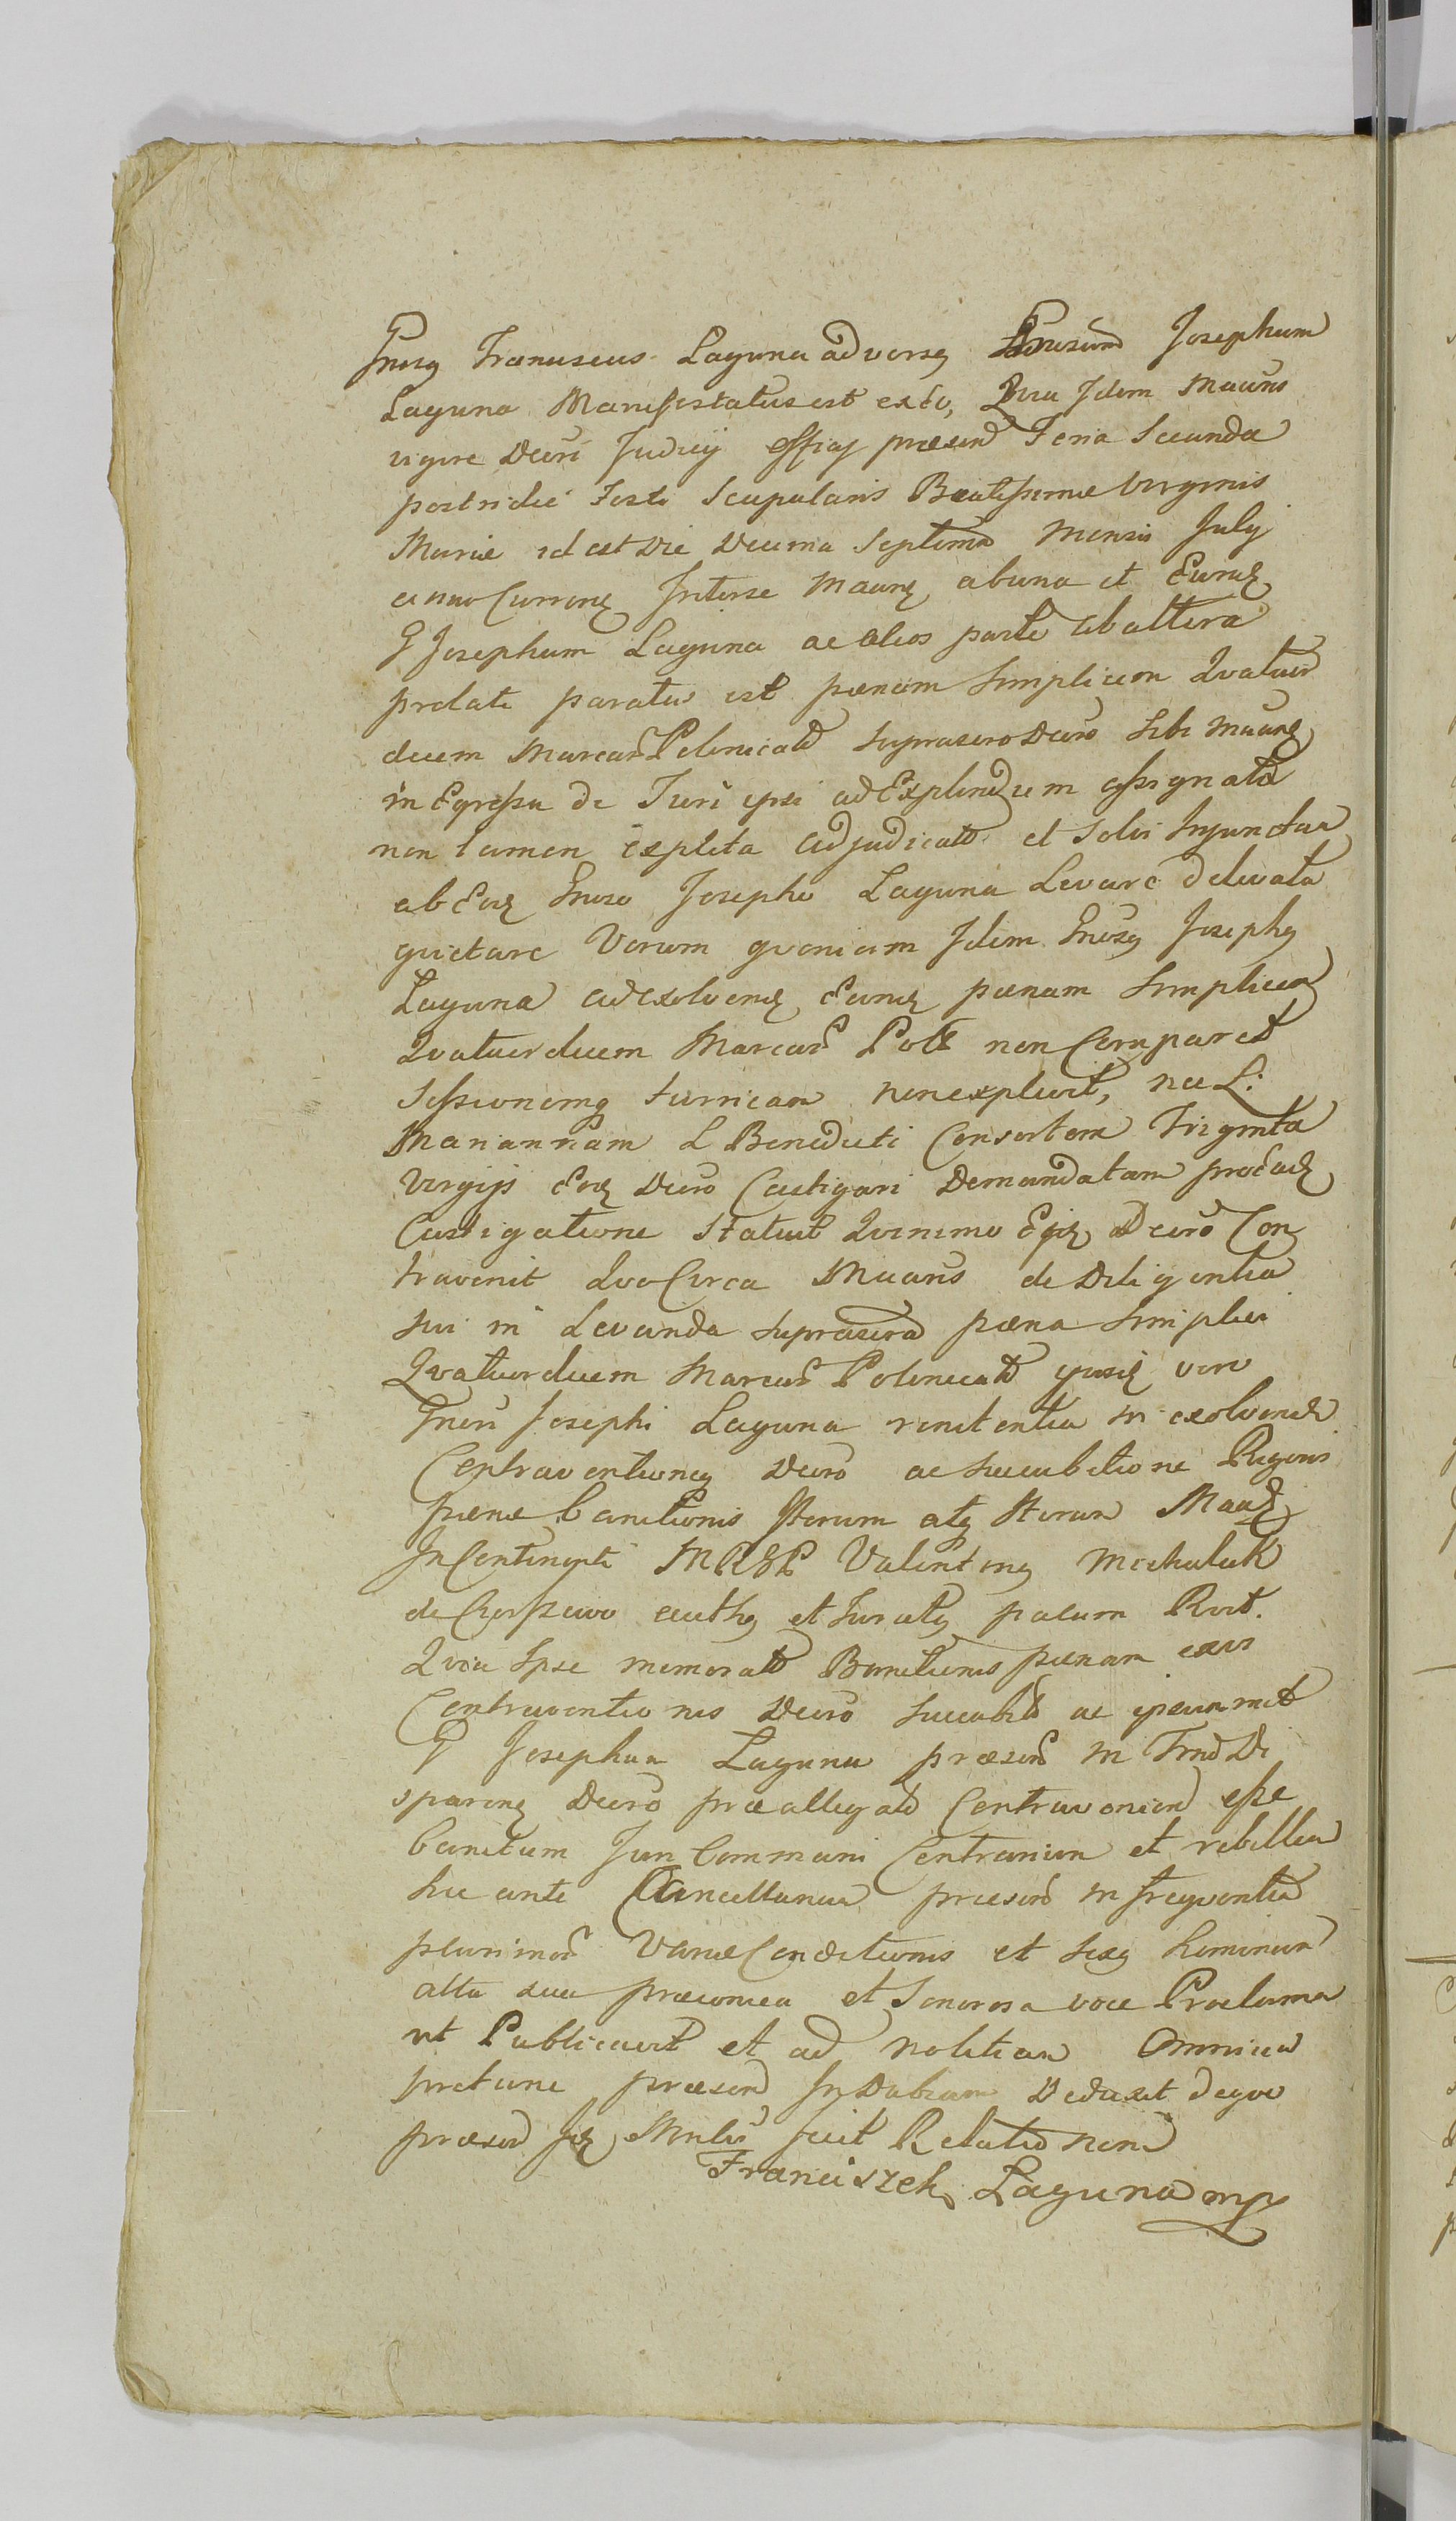 Gnosq Franciscus Laguna adversq Gnosum Josephum
Laguna Manifestatus est ex eo, Quia Idem Maños
vigore Decri Judicij Offiq præsen Feria Secunda
postridie Festi Scapularis Beatissimæ Virginis
Mariæ id est Die Decima Septima Mensis July
anno Curren Inter se Maen ab una et Eund
G Josephum Laguna ac alios parte ab altera
prolati paratus est pænam simplicem Quatuor
decem Marcar Polonicał suprascro Decro sibi Maen
in Egressu de Turri ipsi ad Explendum assignata
non tamen expleta adjudicatt et Solvi Injunctam
ab Eod Gnoso Josepho Laguna Levare delevata
quietare Verum quoniam Idem Gnosq Josephq
Laguna ad exolven Eand pænam simplicem
Quatuordecem Marcar Poll non Comparet
Sessionemq turricam non explevit, nec L:
Mariannam L Benedicti Consortem Triginta
Virgijs Eod Decro Castigari Demandatam pro ead
Castigatione Statuit Quinimo Eid Decro Con
travenit Quo Circa Maños de Diligentia
sui in Levanda suprascra pæna simplici
Quatuordecem Marcar Polonicatt ipsid vero
Gnosi Josephi Laguna renitentia in exolvendo
Contraventioneq Decro ac succubitione Rigoris
pænæ Banitionis Iterum atq Iterum Maed
In Continenti MRGP Valentinq Michalak
de authq et Juratq palam Rcit.
Quia Ipse memoratt Banitionis pænam
Contraventionis Decro succubit ac ipsummet
G Josephum Laguna præsen in Di
sparen Decro præallegato Contravenien esse
banitum Juri Communi Contrarium et rebellem
hic ante Cancellariam præsen in frequentia
plurimor Variæ Conditionis et sexq hominum
alta sua præconica et Sonorosa voce Proclama
vit Publicavit et ad notitiam Omnium
pretunc præsen Indubiam Deduxit deque
præsen fecit Relationem
Franciszek Laguna mp